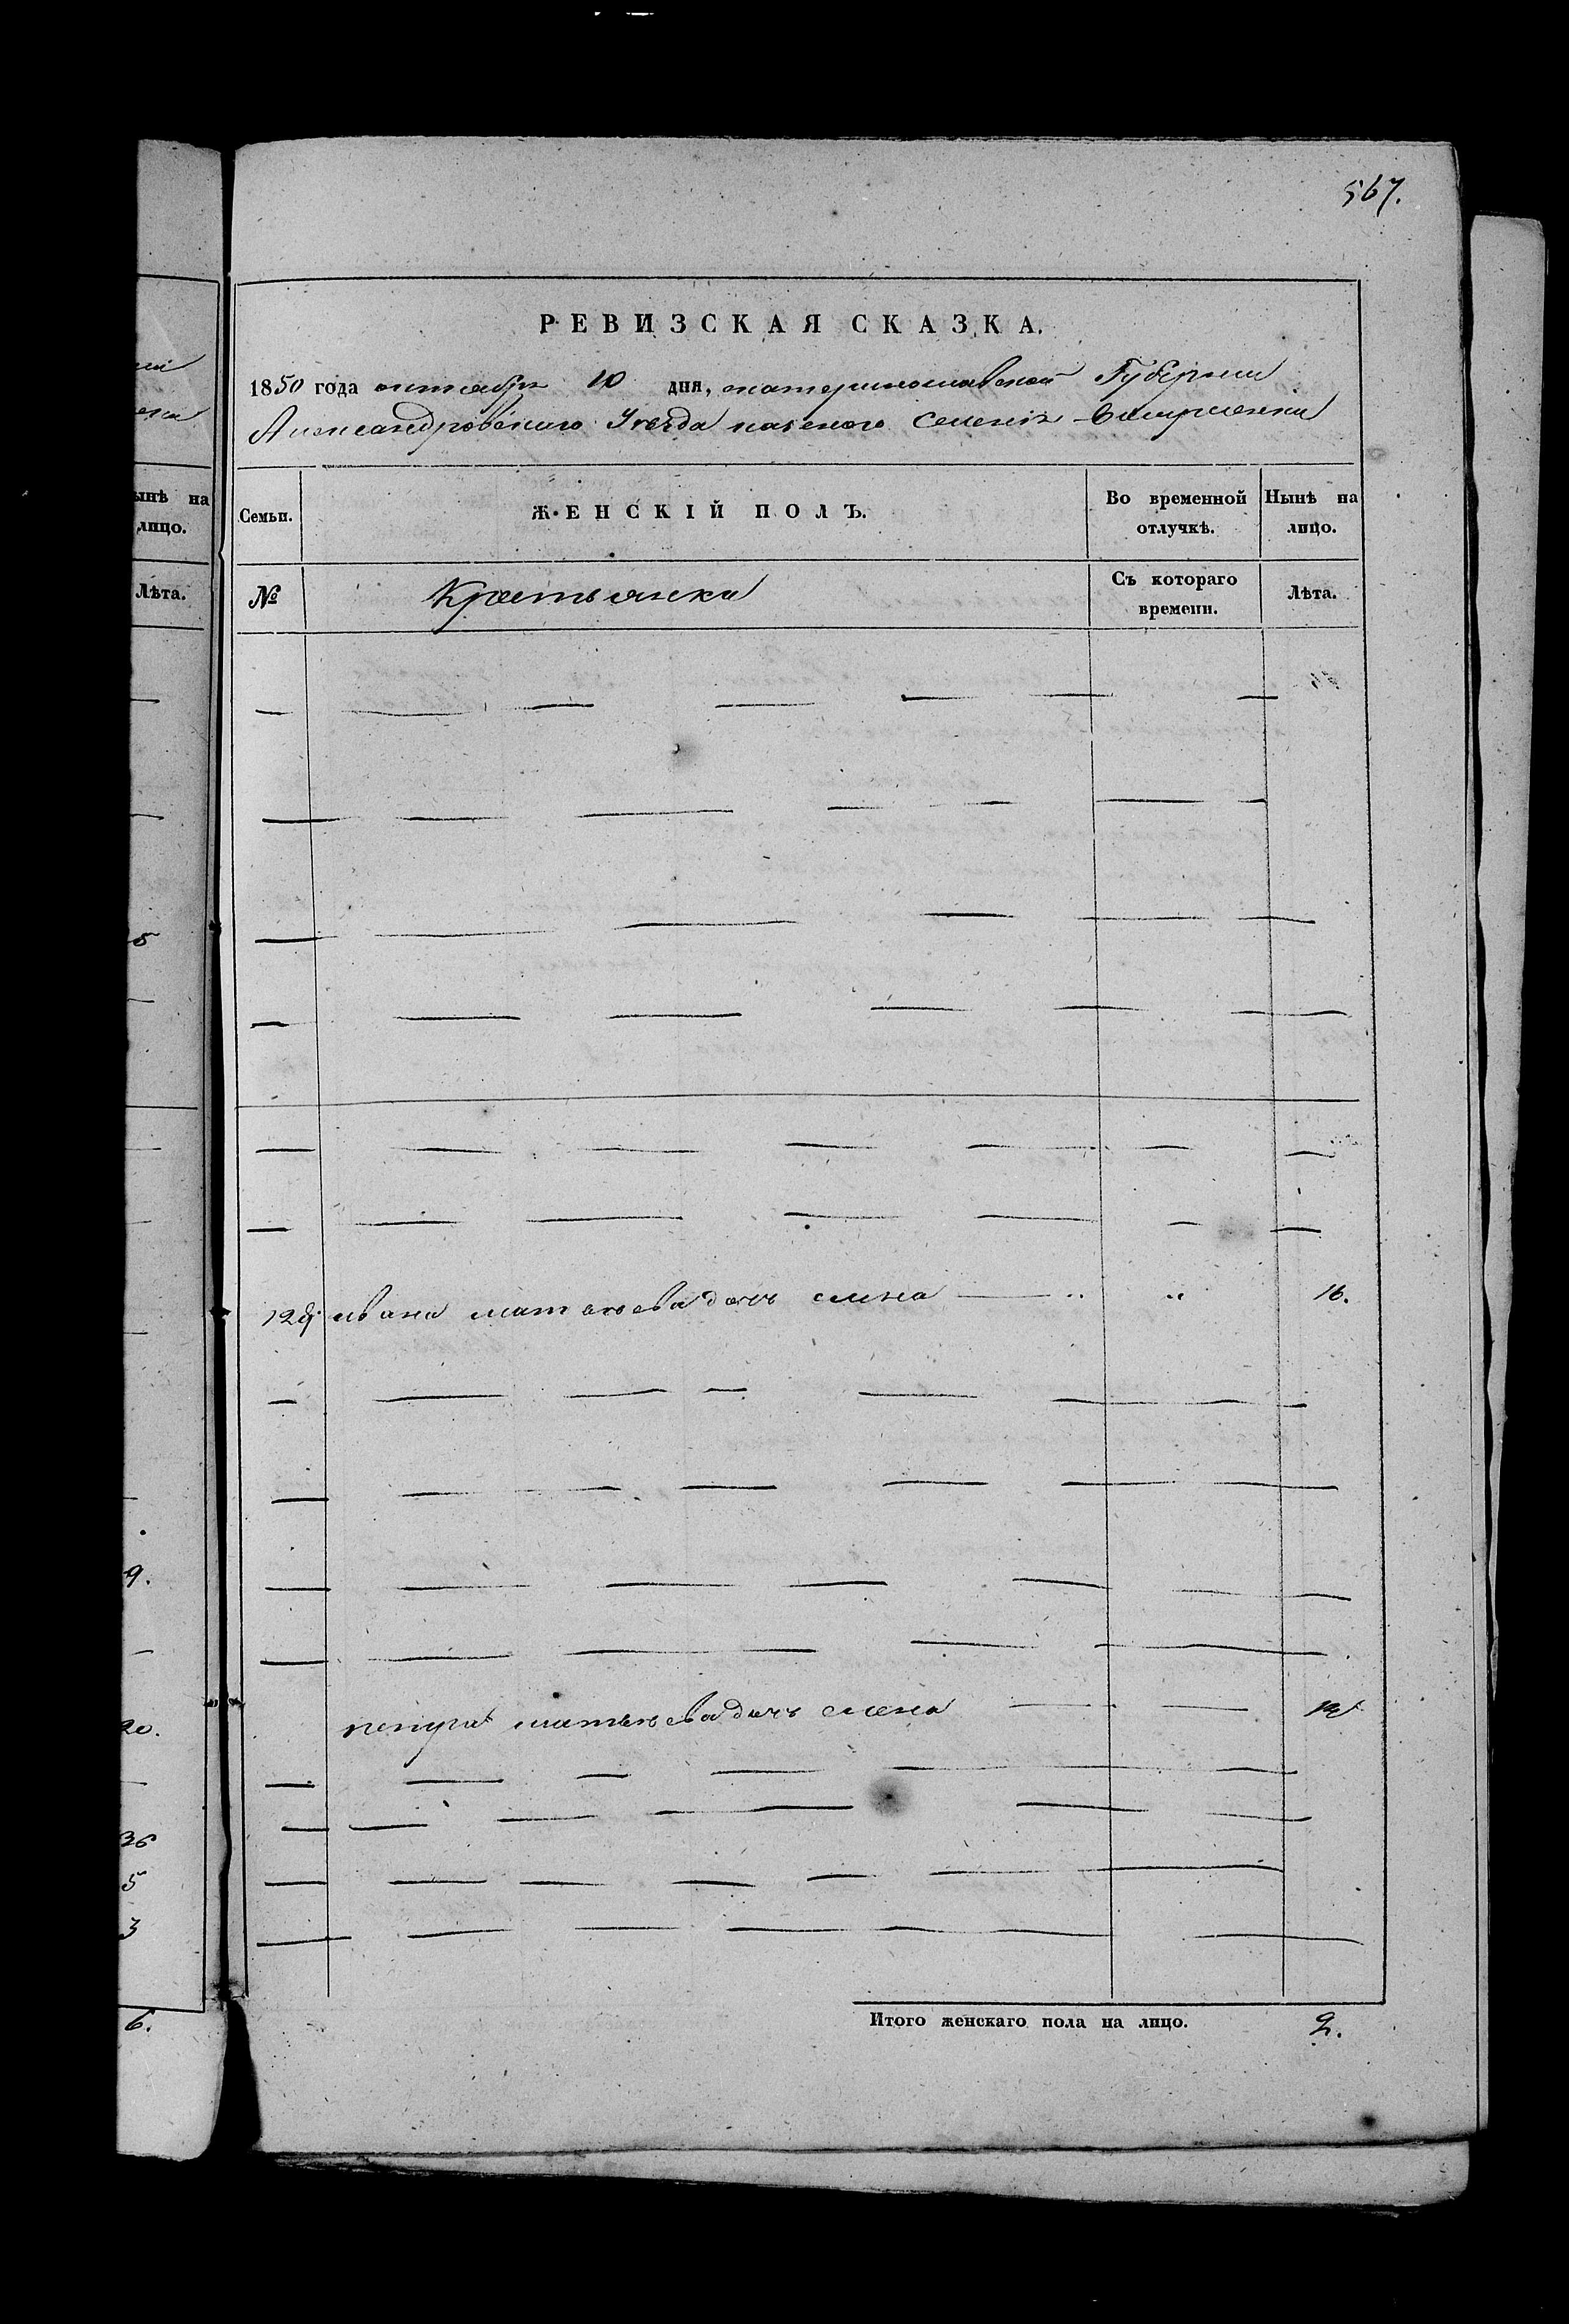 567.
РЕВИЗСКАЯ СКАЗКА.
1850 года октября 10 дня, екатеринославской Губернии
Александровского Уезда казеного Селения
Семьи. ЖЕНСКІЙ ПОЛЪ. Во временной отлучкѣ. Нынѣ на лицо.
№ Крестьянки Съ котораго времени. Лѣта.
ивана матвеева дочь елена 16.
петра матвеева дочь елена
Итого женскаго пола на лицо. 2.
ынѣ на
лицо.
Лѣта.
5
9.
20.
36
5
3
6.